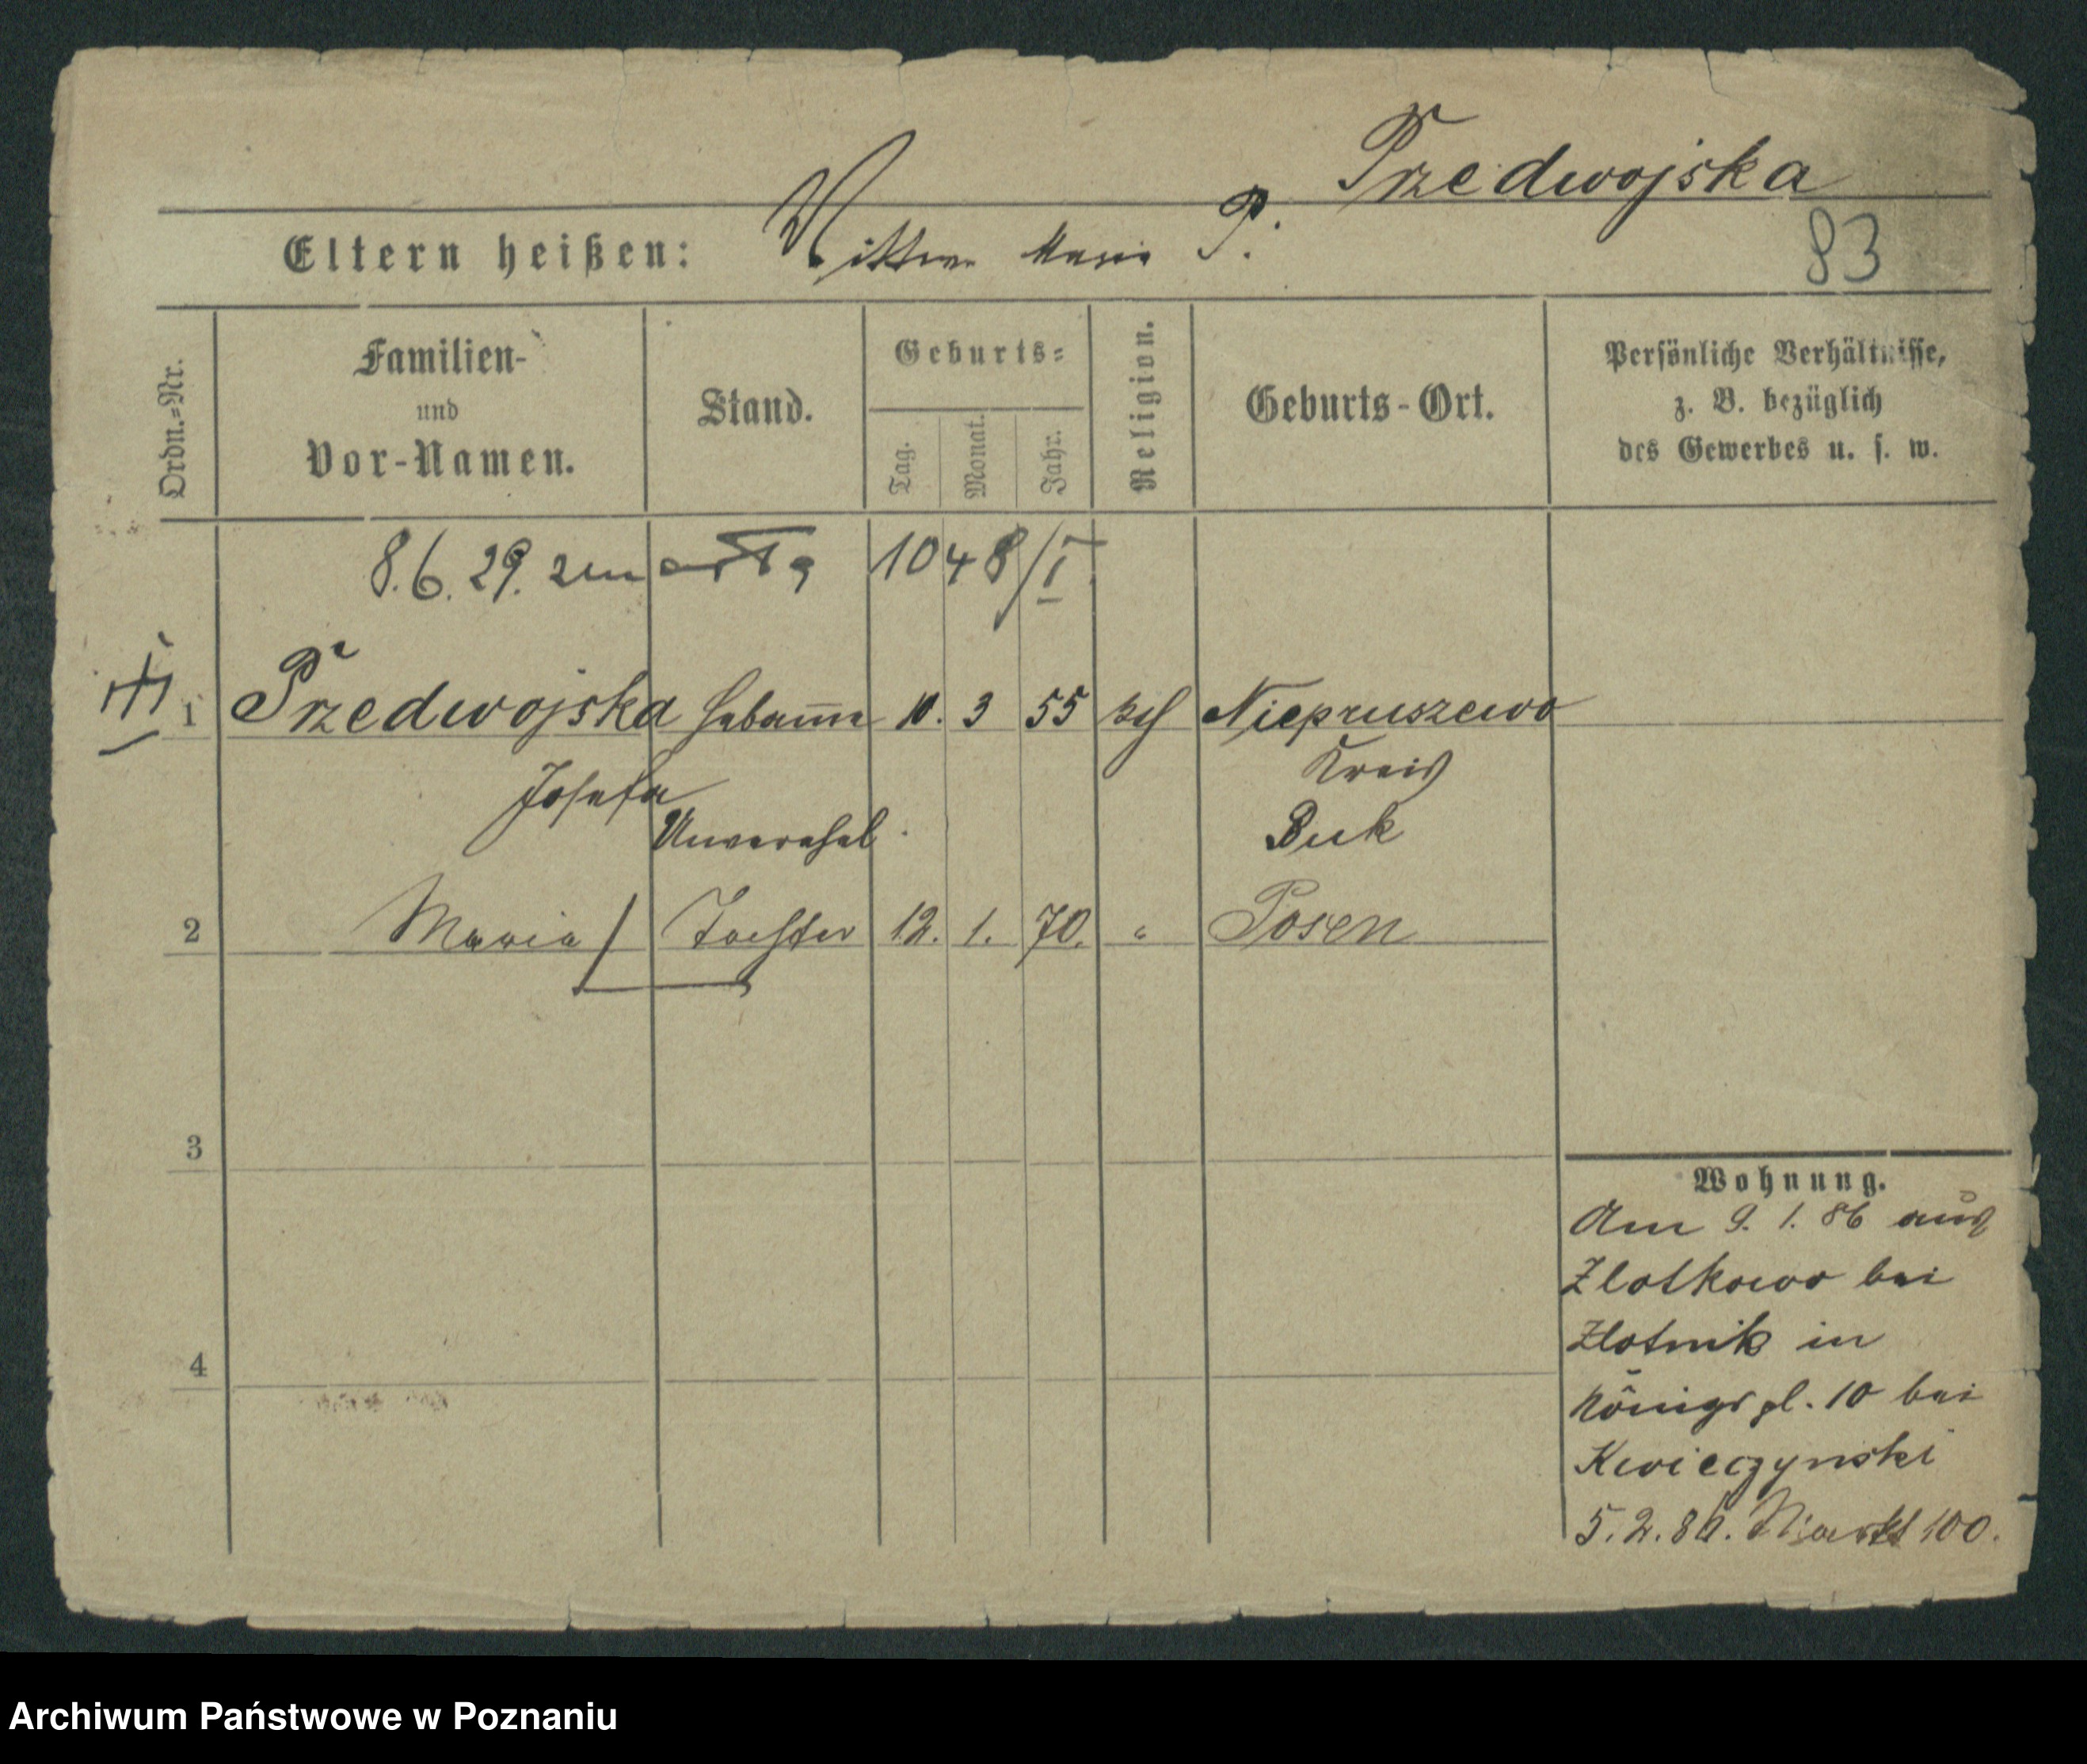 Przedwojska
Eltern heißen: Wittwe Maria P.
83
Ordn.=Nr.
Familien-
und
Vor-Namen.
Stand.
Geburts=
Tag.
Monat.
Jahr.
Religion.
Geburts-Ort.
Persönliche Verhältnisse,
z. B. bezüglich
des Gewerbes u. s. w.
8.6.29. zmarła 1048/I
1 Przedwojska Hebamme 10. 3 55 kth Niepruszewo
Josefa Kreis
Unverehel. Buk
2 Maria Tochter 12. 1. 70. " Posen
3
4
Wohnung.
Am 9. 1. 86 aus
Zlotkowo bei
Zlotnik in
Königspl. 10 bei
Kwieczynski
5.2.86. Markt 100.
Archiwum Państwowe w Poznaniu